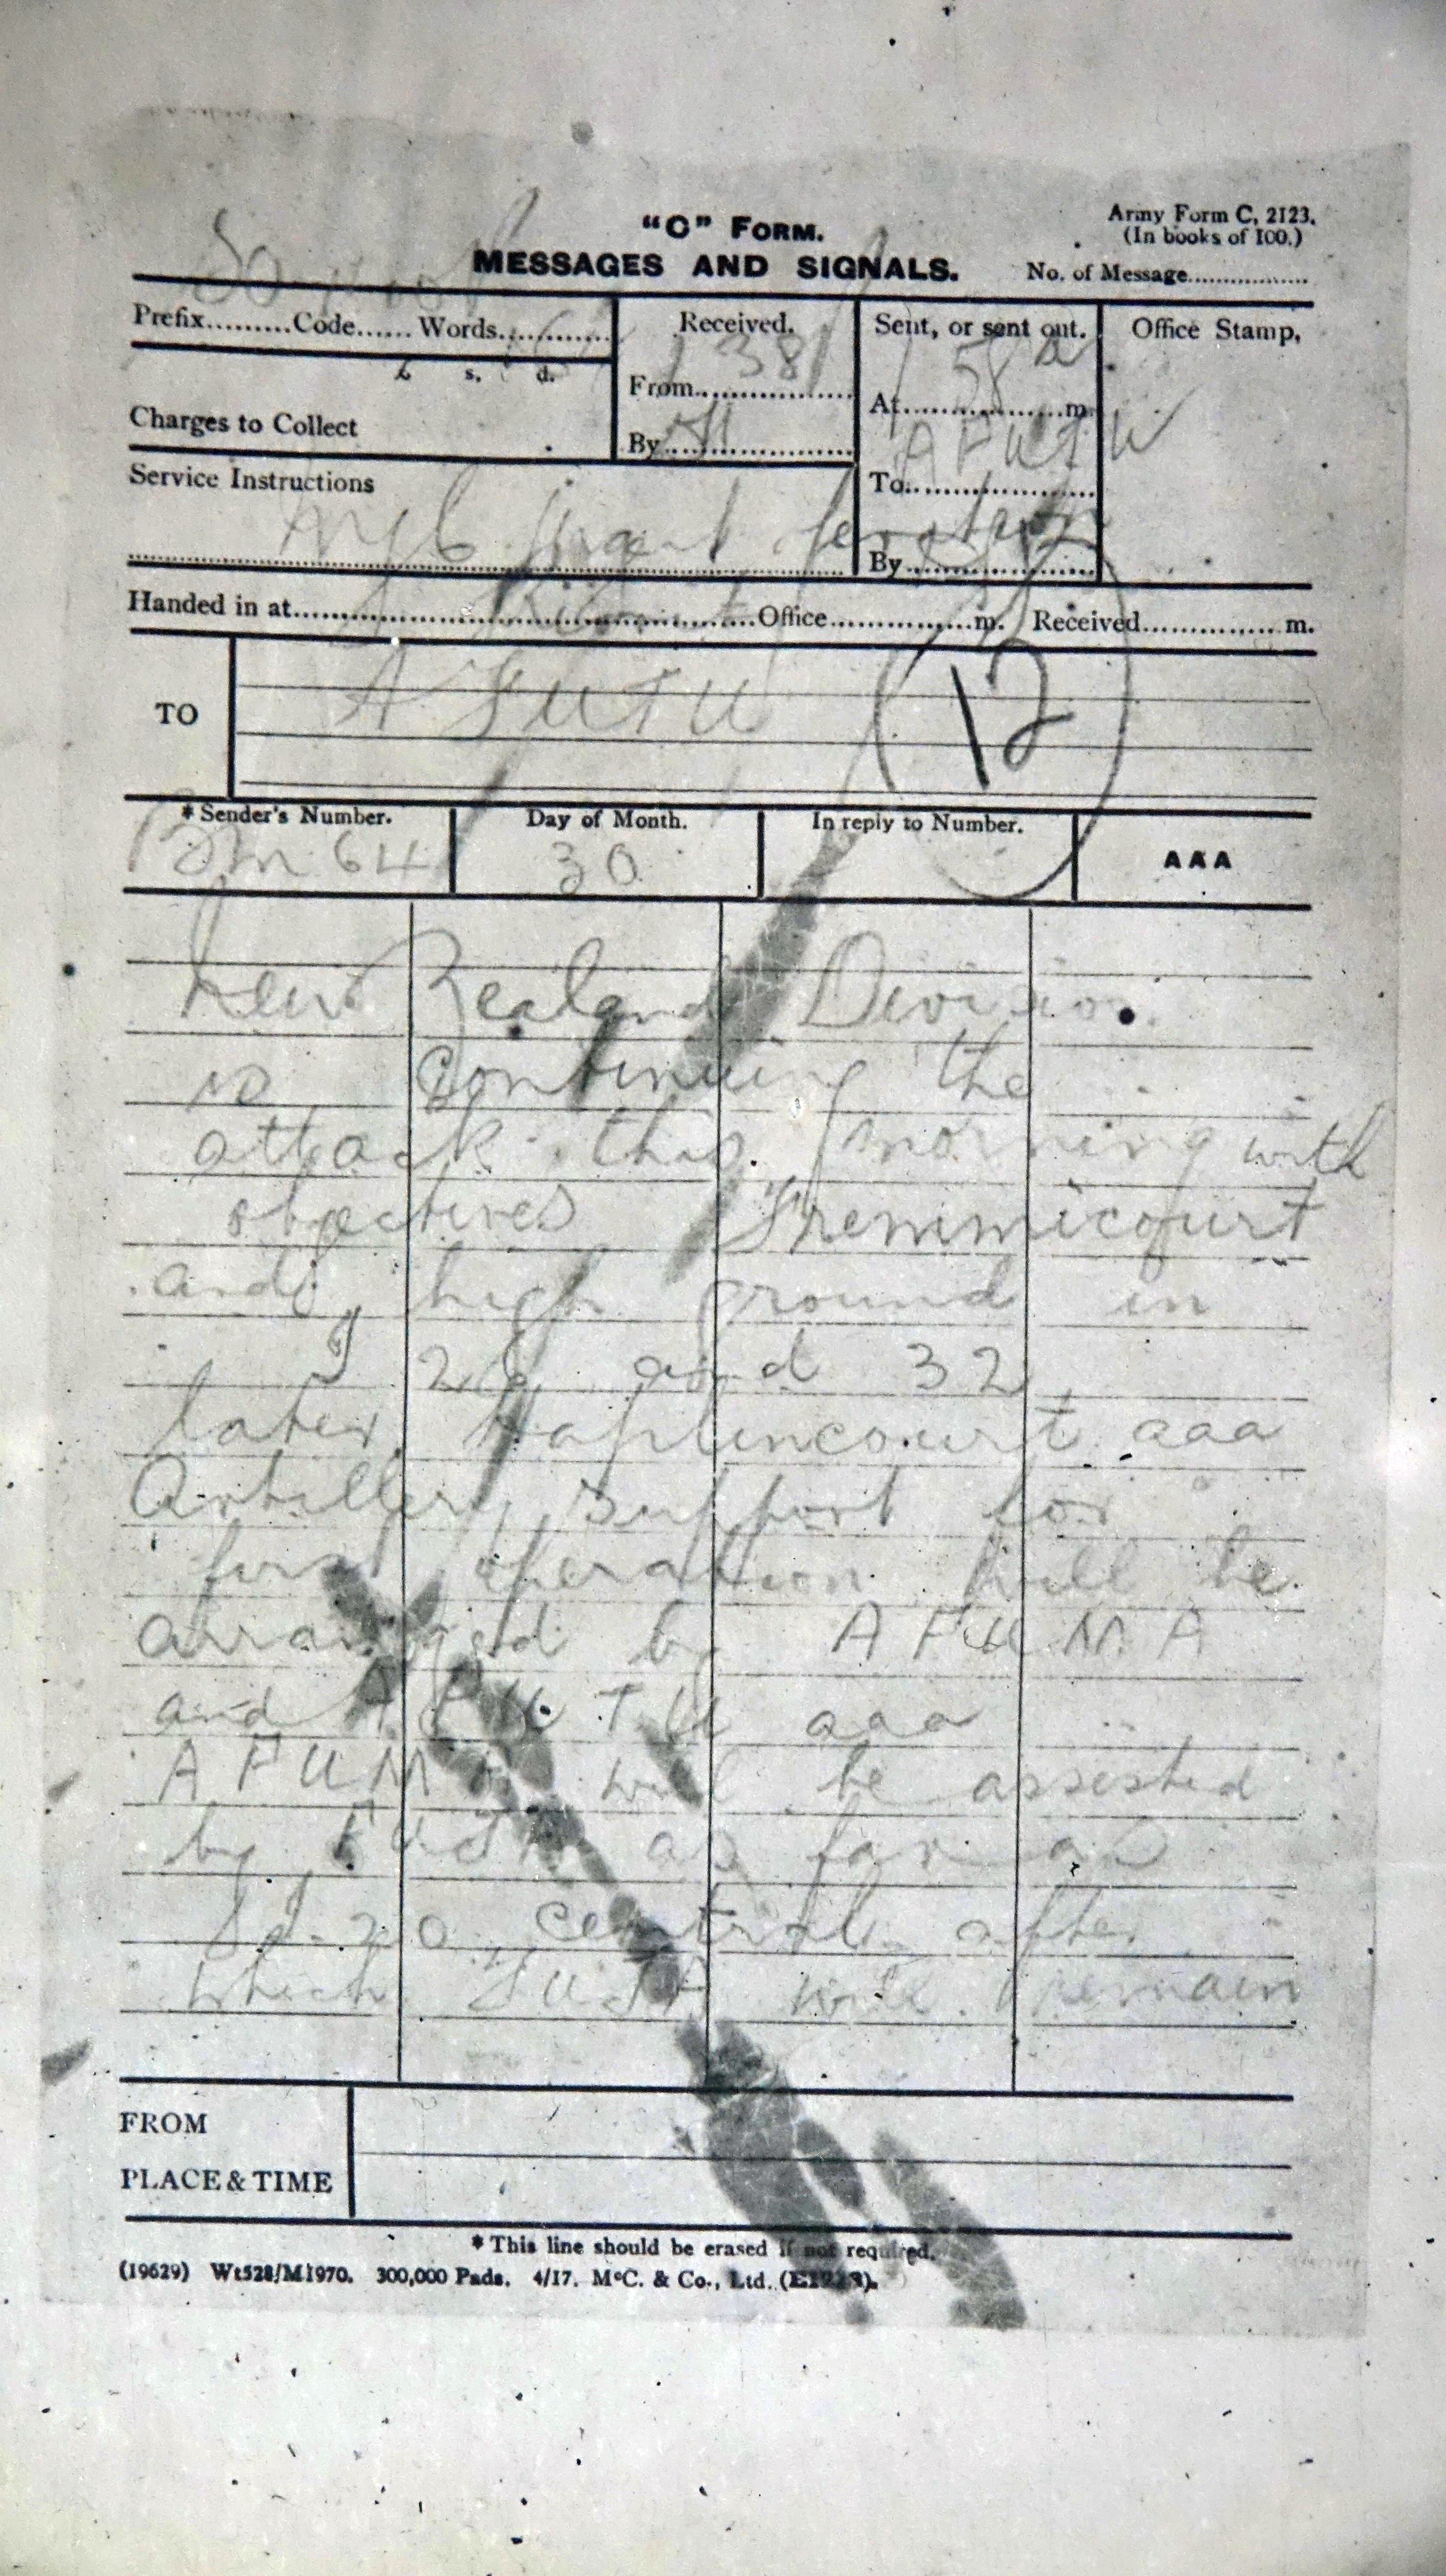 "C" FORM.
MESSAGES AND SIGNALS.
Army Form C, 2123.
(In books of 100.)
No. of Message..................
Prefix.........Code......Words............
Received.
Sent, or sent out.
Office Stamp,
£ s. d.
Charges to Collect
From................
38
By..................
At................m.
58
To....................
AFUTU
By....................
Service Instructions
Handed in at..............................................Office...............m. Received...............m.
TO
AFUTU
(12)
* Sender's Number.
Day of Month.
In reply to Number.
AAA
BM 64
30
New Zealand Division
is continuing the
attack this morning with
objectives Fremmicourt
and high ground in
I and 32
later Haplincourt aaa
Artillery support for
first operation will be
arranged by AFUMA
and AFUTU aaa
AFUMA will be assisted
by as far as
20 central after
which will remain
FROM
PLACE & TIME
* This line should be erased if not required.
(19629) Wt528/M1970. 300,000 Pads. 4/17. McC. & Co., Ltd.